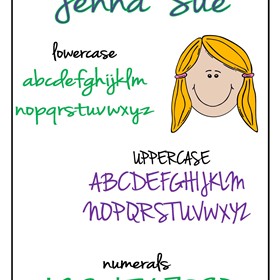 Jenna Sue
lowercase
abcdefghijklm
nopqrstuvwxyz
UPPERCASE
ABCDEFGHIJKLM
NOPQRSTUVWXYZ
numerals